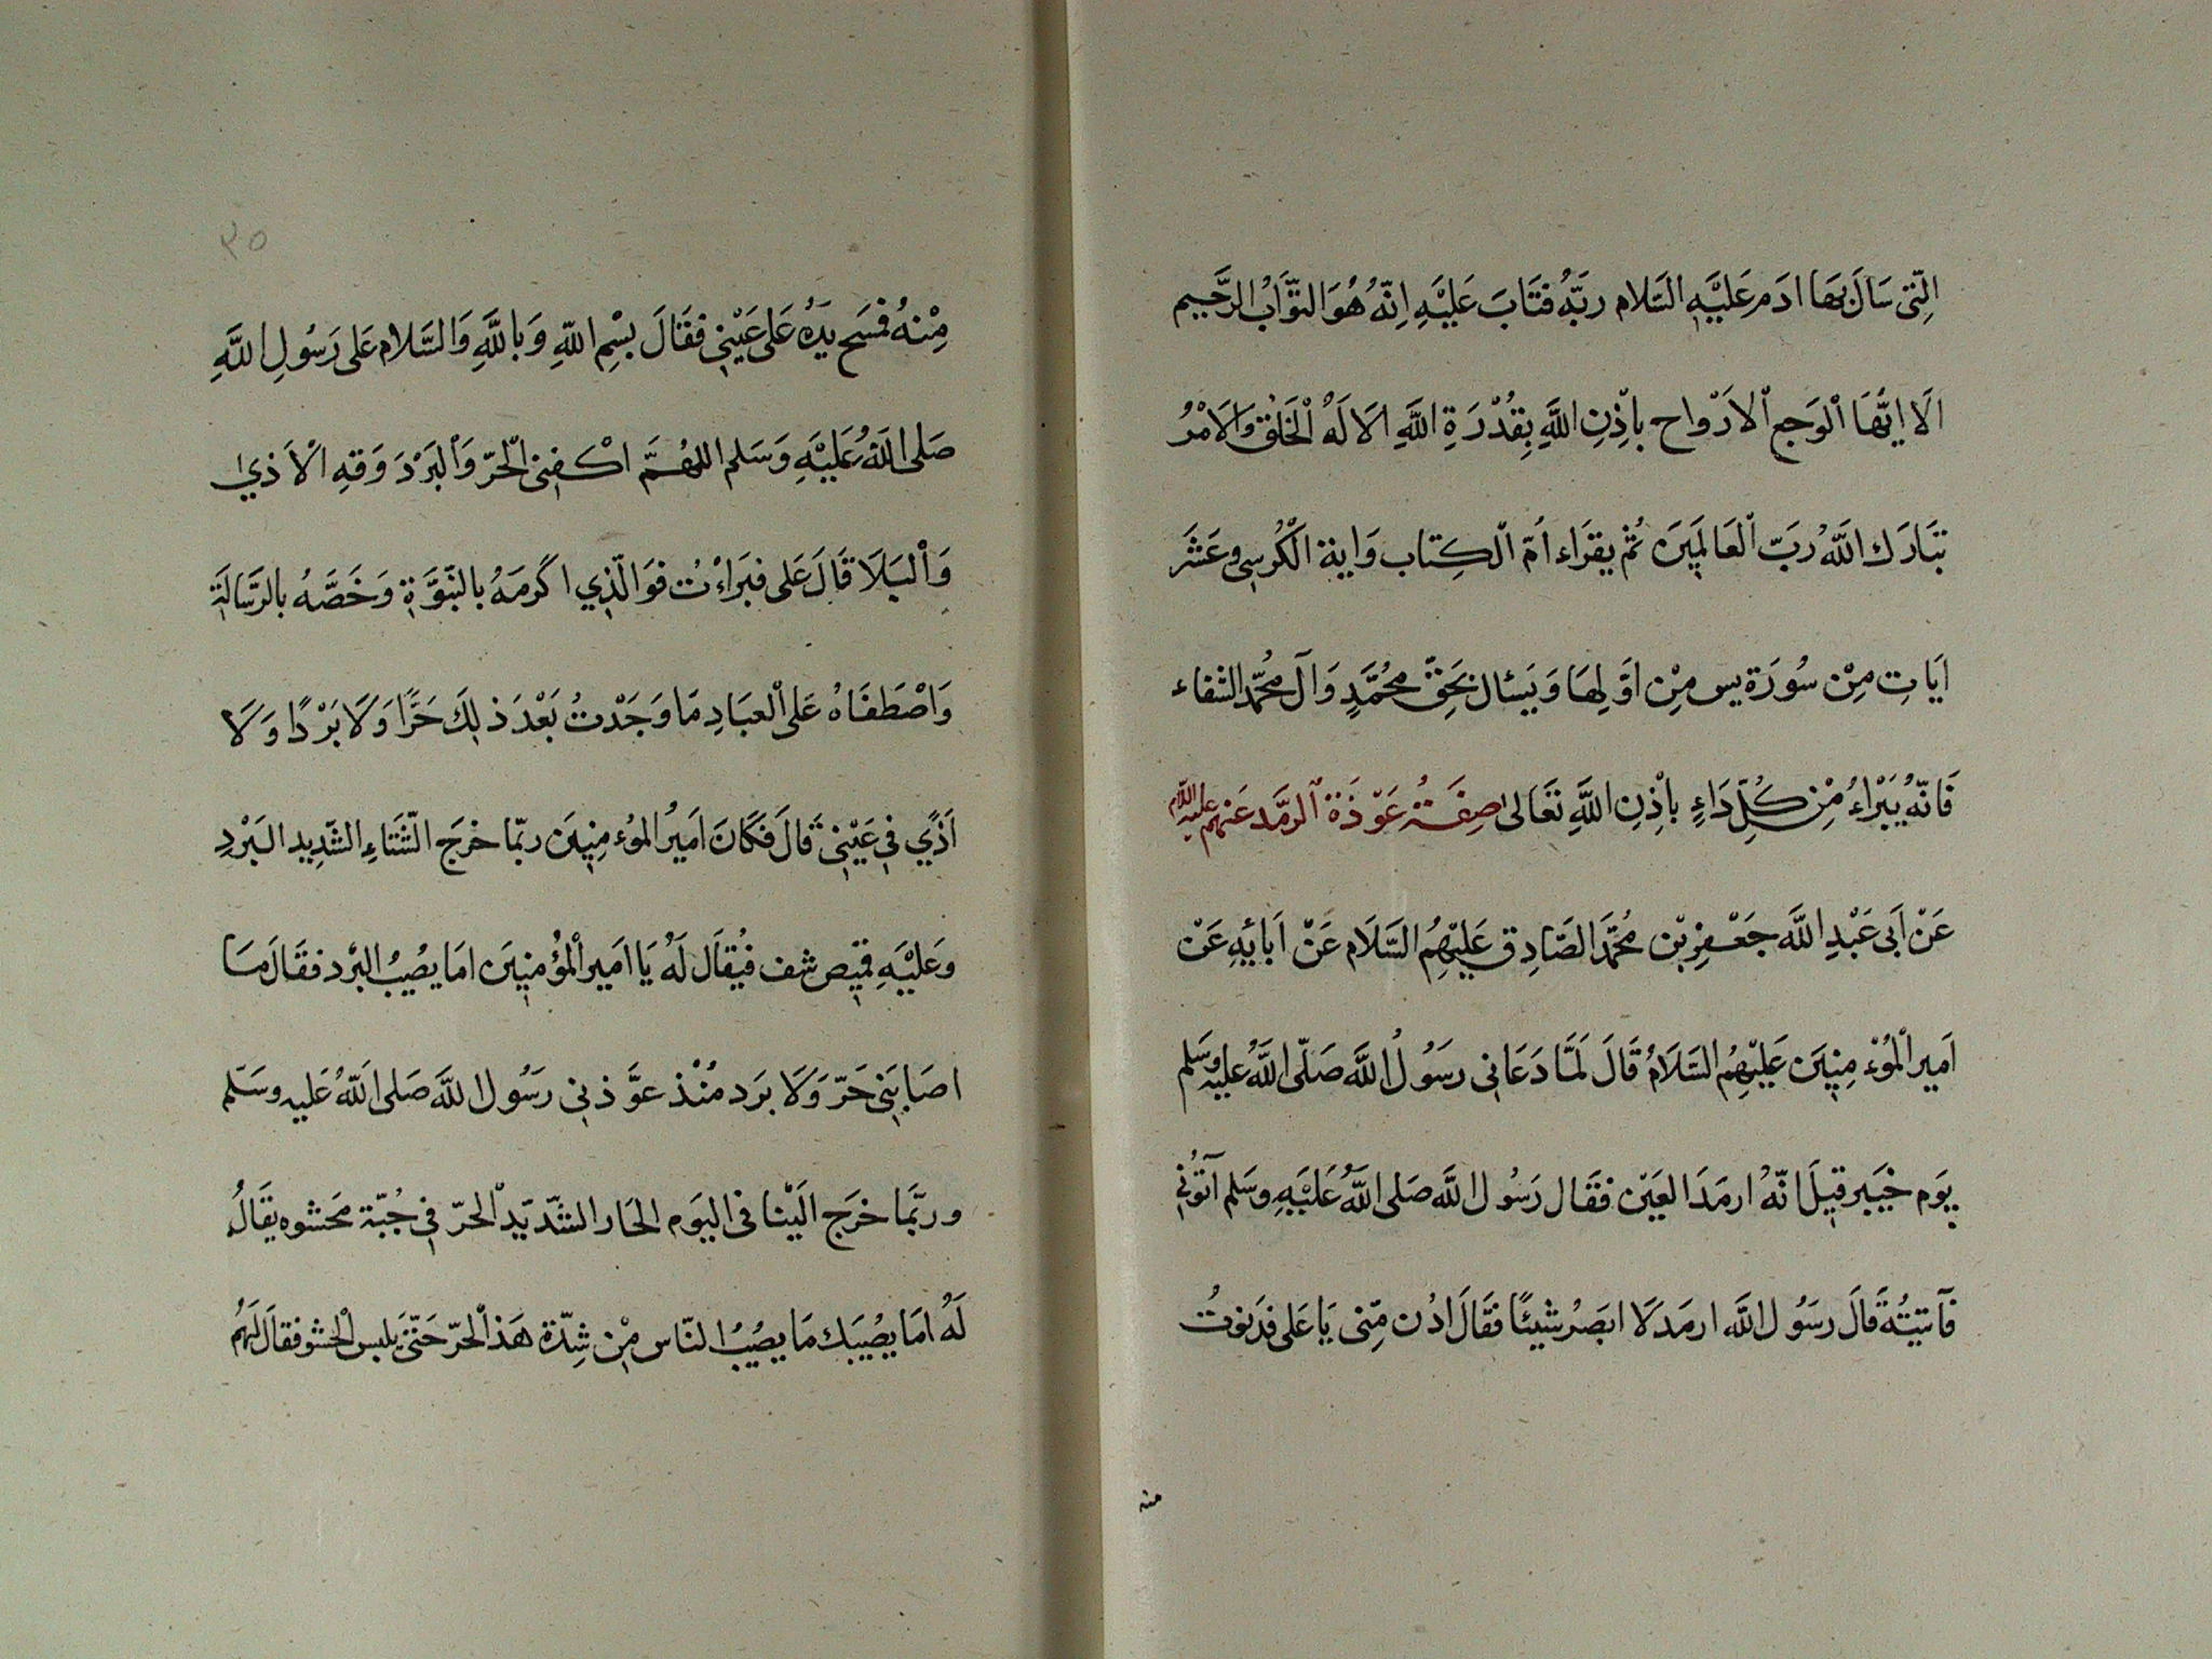 الَّتِي سَالَ بِهَا ادَم عَلَيْهِ السَّلام رَبَّهُ فَتَابَ عَلَيْهِ اِنَّهُ هُوَ التَّوَّابُ الرَّحِيم
الَا ايُّهَا الْوَجع الْارْواح باِذْنِ اللَّهِ بِقُدْرَةِ اللَّهِ الَا لَهُ الْخَلْق وَالَامْرُ
تَبَارَك اللَّهُ رَبّ الْعَالَمِينَ ثُمّ يقرَاء اُمّ الْكِتاب وَاية الْكُرسِى وعَشَر
ايَاتٍ مِنْ سُورَة يس مِنْ اوَّلِهَا وَيَسئال بحَقّ محُمَّدٍ وَآل مُحَمّد الشفاء
فَانّهُ يَبْرَاءُ مِنْ كُلِّ دَاءٍ باِذْنِ اللَّهِ تَعَالى صِفَةُ عَوْذَة الرمَّد عَنهم عليه السّلام
عَنْ اَبى عَبْدِ اللَّه جَعْفِر بْن مُحَمَّد الصَّادِق عَلَيْهِمُ السَّلَام عَنْ اَبائِهِ عَنْ
اَمير الْمُوءمِنِينَ عَلَيْهِمُ السَّلَامُ قَالَ لَمَّا دَعَانِى رسَوُلُ اللَّه صَلّى اللَّهُ عليه وسَلم
يوَم خَيبَر قِيلَ انّهُ ارمَدَ العَيْن فقَال رَسُول اللَّه صَلى اللَّهُ عَلَيْهِ وسَلم آتوُنِى
فآتيتُهُ قَالَ رسَوُل اللَّه ارمَد لَا ابصَرُ شيئًا فقَالَ ادُن مِنّى يَا عَلى فَدَنوتُ
منه
٣٥
مِنْهُ فَمسَح يَدَهُ عَلى عَيْنِى فقَالَ بِسْمِ اللّهِ وَبِاللَّهِ وَالسَّلام عَلى رَسُولِ اللَّهِ
صَلى اللَّهُ عَلَيْهِ وَسَلم اللهُمَّ اكْفِنى الْحَرّ وَالْبَرْدَ وَقهِ الْاَذي
وَالْبَلَا قَالَ عَلى فَبَرَاءْتُ فوَالّذِي اكَرمَهُ بالنُّبوَّةِ وَخَصَّهُ بالرِّسَالَةِ
وَاصْطَفَاهُ عَلى الْعبَادِ مَا وَجَدْتُ بَعْدَ ذلِكَ حَرًّا وَلَا بَرْدًا وَلَا
اَذًي فى عَيْنِى قَالَ فَكَانَ اَمَيرُ الموُءمِنِينَ ربّما خرَج الشّتَاءِ الشَّدِيد البَرْدِ
وَعَليْهِ قمِيص شف فيُقاَل لَهُ يَا اَمَير الْمؤُمنِينَ امَا يصُيبُ البرَد فقَالَ مَا
اصَابَنِى حَرّ وَلَا برَد مُنْذ عوَّذنِى رَسُول اللَّه صَلى اللّهُ عَليه وسَلم
وربَّمَا خَرَج الَيْنا فى اليوَم الحَار الشَّديد الْحَرّ فى جُبّة مَحَشوه يقَالُ
لَهُ امَا يصُيبَك مَا يصُيبُ النّاس مِن شِدّة هَذ الْحَرّ حَتّى يلبس الْحشو فقَالَ لَهُم